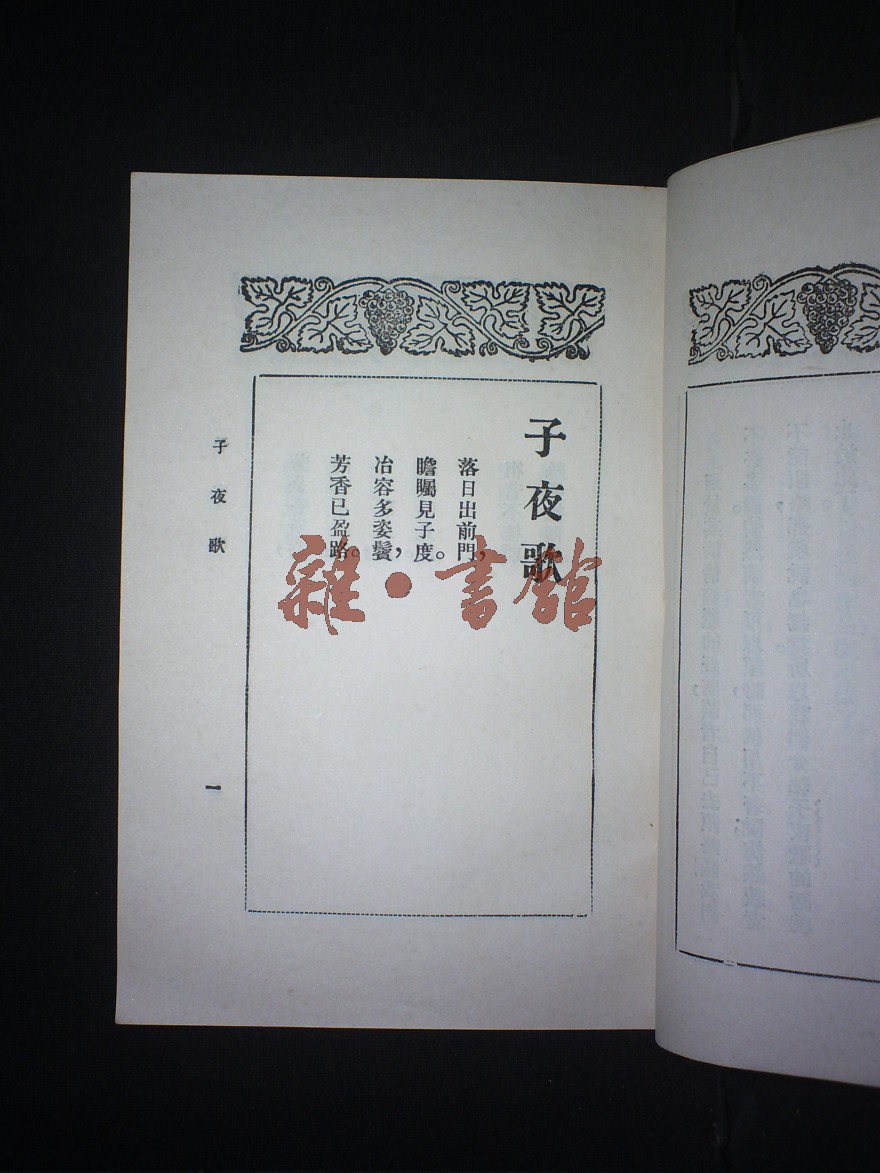 子夜歌
落日出前門，
瞻矚見子度。
冶容多姿鬢，
芳香已盈路。
子夜歌
一
雜·書館